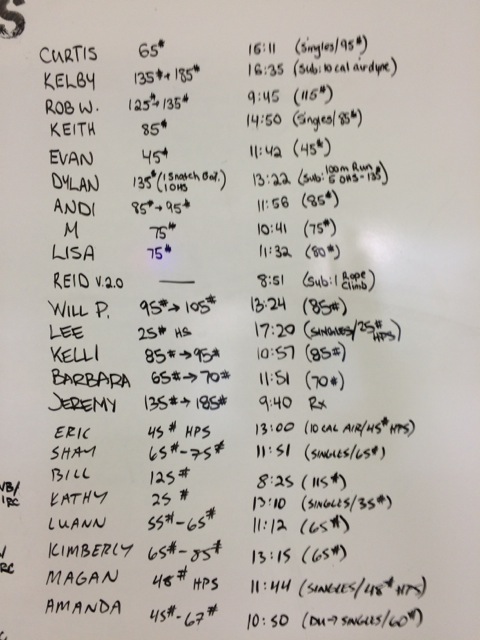 S
CURTIS 65# 16:11 (singles/95#)
KELBY 135#→185# 16:35 (sub: 10 cal airdyne)
ROB W. 125#→135# 9:45 (115#)
KEITH 85# 14:50 (Singles/85#)
EVAN 45# 11:42 (45#)
DYLAN 135# (1 Snatch Bal. / 1 OHS) 13:22 (Sub: 100m Run 5 OHS-135)
ANDI 85#→95# 11:56 (85#)
M 75# 10:41 (75#)
LISA 75# 11:32 (80#)
REID V.2.0 — 8:51 (Sub: 1 Rope Climb)
WILL P. 95#→105# 13:24 (85#)
LEE 25# HS 17:20 (SINGLES/25# HPS)
KELLI 85#→95# 10:57 (85#)
BARBARA 65#→70# 11:51 (70#)
JEREMY 135#→185# 9:40 Rx
ERIC 45# HPS 13:00 (10 CAL AIR/45# HPS)
SHAY 65#-75# 11:51 (SINGLES/65#)
BILL 125# 8:25 (115#)
VB/
KATHY 25# 13:10 (SINGLES/35#)
RC
LUANN 55#-65# 11:12 (65#)
KIMBERLY 65#-85# 13:15 (65#)
RC
MAGAN 48# HPS 11:44 (SINGLES/48# HPS)
AMANDA 45#-67# 10:50 (DU→SINGLES/60#)